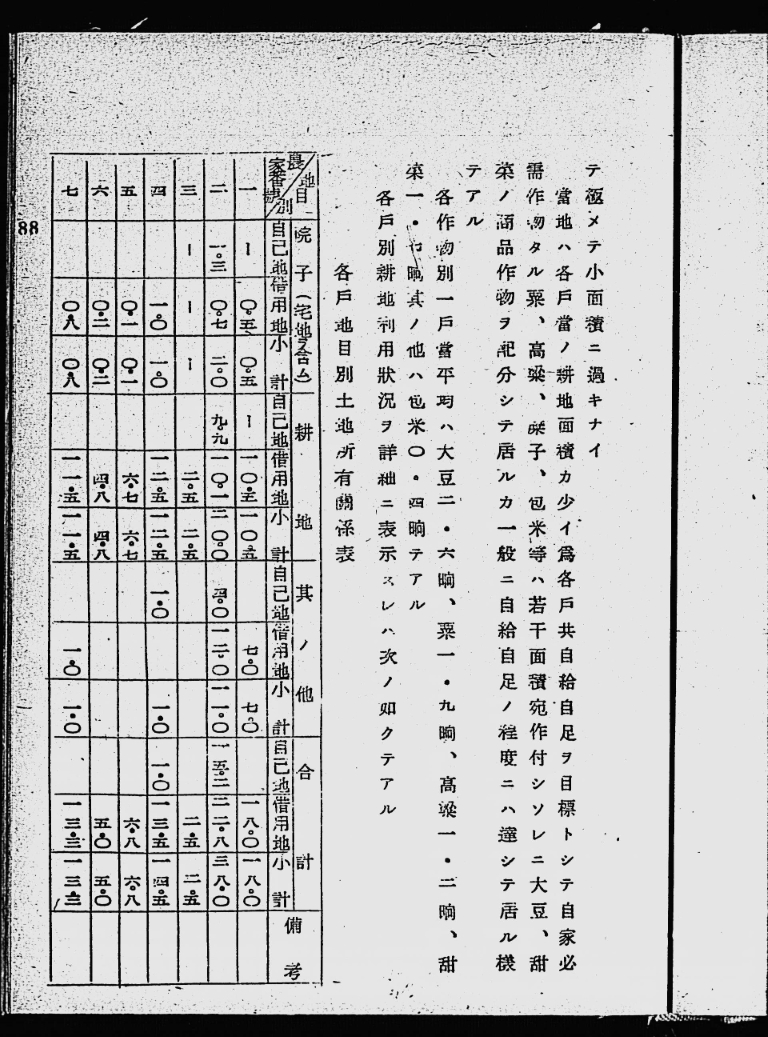 テ極メテ小面積ニ過キナイ
當地ハ各戸當ノ耕地面積カ少イ爲各戸共自給自足ヲ目標トシテ自家必
需作物タル粟、高粱、糜子、包米等ハ若干面積宛作付シソレニ大豆、甜
菜ノ商品作物ヲ配分シテ居ルカ一般ニ自給自足ノ程度ニハ達シテ居ル樣
テアル
各作物別一戸當平均ハ大豆二・六晌、粟一・九晌、高粱一・二晌、甜
菜一・七晌其ノ他ハ包米〇・四晌テアル
各戸別耕地利用狀況ヲ詳細ニ表示スレハ次ノ如クテアル
各戸地目別土地所有關係表
地目別 農家番號 院子(宅地ヲ含ム) 耕地 其ノ他 合計 備考
自己地 借用地 小計 自己地 借用地 小計 自己地 借用地 小計 自己地 借用地 小計
一 ー 〇・五 〇・五 ー 一〇・五 一〇・五 七・〇 七・〇 一八・〇 一八・〇
二 一・三 〇・七 二・〇 九・九 一〇・一 二〇・〇 四・〇 一二・〇 一一・〇 一五・二 二二・八 三八・〇
三 ー ー ー 二・五 二・五 二・五 二・五
四 一・〇 一・〇 一二・五 一二・五 一・〇 一・〇 一・〇 一三・五 一四・五
五 〇・一 〇・一 六・七 六・七 六・八 六・八
六 〇・二 〇・二 四・八 四・八 五・〇 五・〇
七 〇・八 〇・八 一一・五 一一・五 一・〇 一・〇 一三・三 一三・三
88